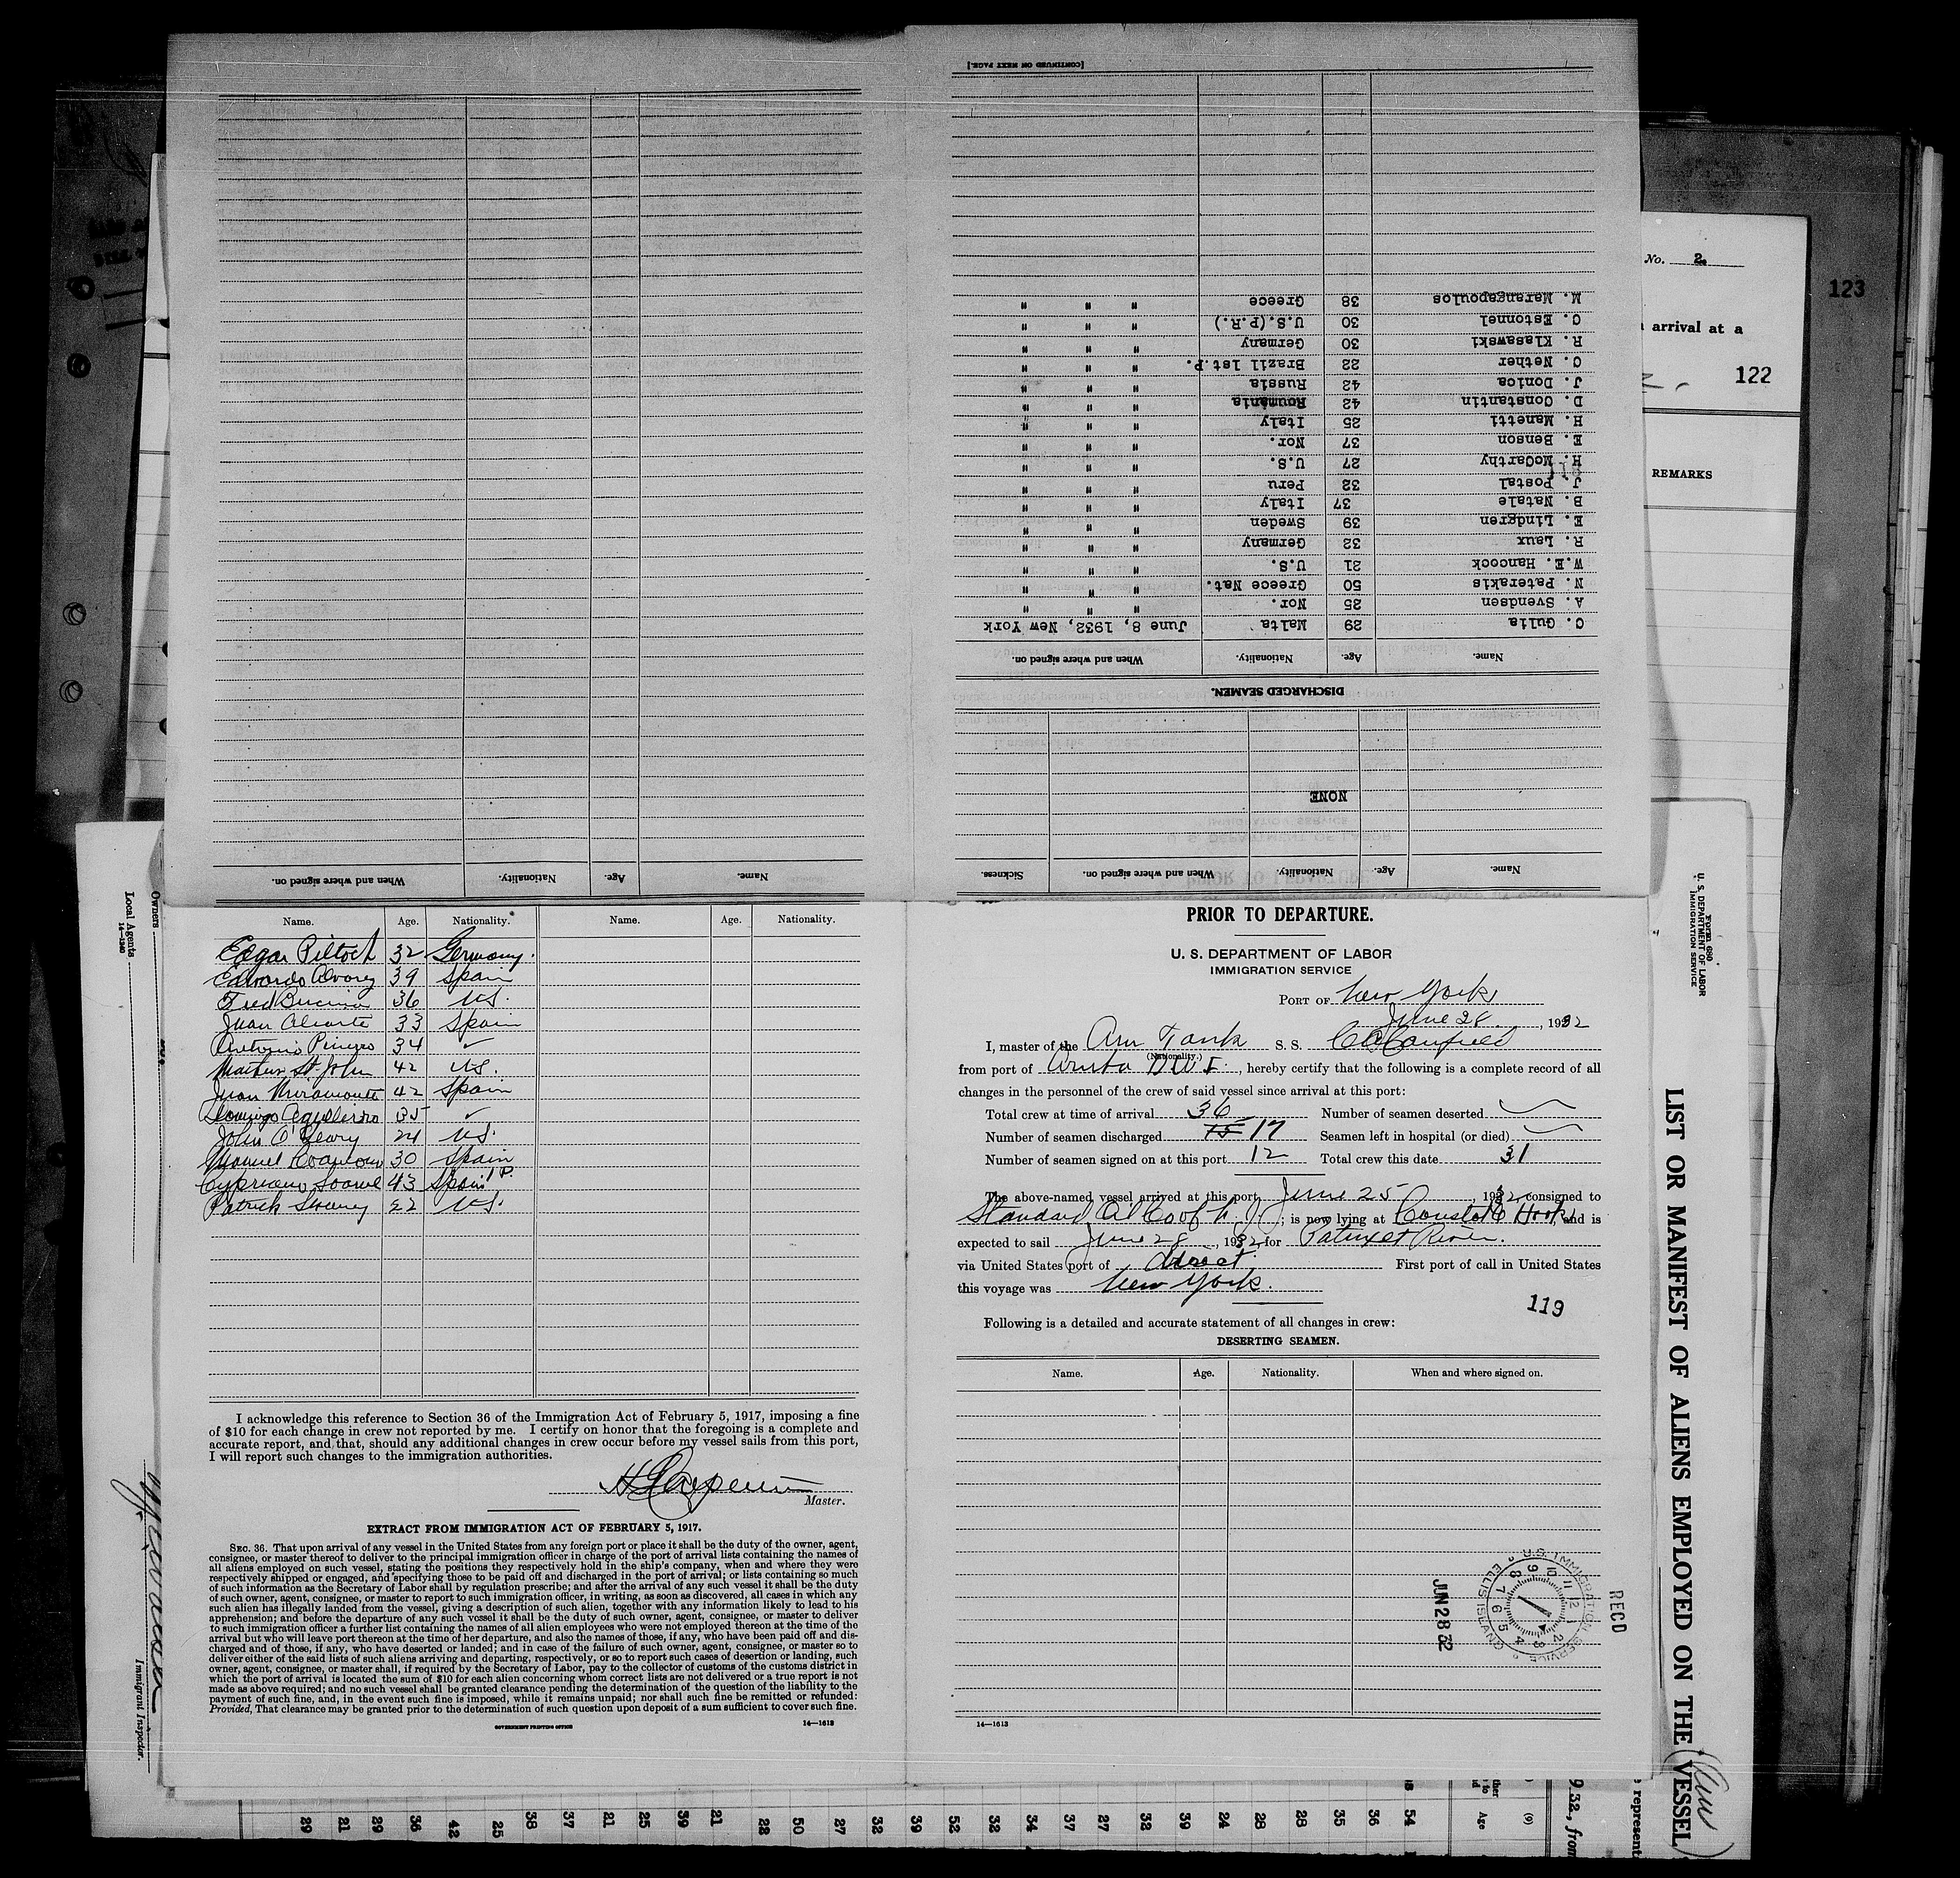 [CONTINUED ON NEXT PAGE.]
M. Marangapoulos 38 Greece " " "
C. Estonnel 30 U.S.(P.R.) " " "
R. Klasawski 30 Germany " " "
C. Nether 22 Brazil 1st.P. " " "
J. Donica 42 Russia " " "
D. Constantin 42 Roumania " " "
H. Manetti 25 Italy " " "
E. Benson 37 Nor. " " "
H. McCarthy 27 U.S. " " "
J. Postal 32 Peru " " "
B. Natale 37 Italy " " "
E. Lindgren 39 Sweden " " "
R. Laux 32 Germany " " "
W.E. Hancock 21 U.S. " " "
N. Paterakis 50 Greece Nat. " " "
A. Svendsen 25 Nor. " " "
C. Gulia 29 Malta June 8, 1932, New York
Name. Age. Nationality. When and where signed on.
DISCHARGED SEAMEN.
NONE
Name. Age. Nationality. When and where signed on. Sickness.
Name. Age. Nationality. When and where signed on.
No. 2
arrival at a
122
123
REMARKS
Name. Age. Nationality. Name. Age. Nationality.
Edgar 32 Germany.
Edwardo 39 Spain
Fred 36 U.S.
Juan 33 Spain
Antonio 34 ✓
St. John 42 U.S.
Juan Miramonte 42 Spain
Domingo 35 ✓
John O'Leary 24 U.S.
Manuel 30 Spain
Cypriano 43 Spain 1 P.
Patrick 22 U.S.
I acknowledge this reference to Section 36 of the Immigration Act of February 5, 1917, imposing a fine
of $10 for each change in crew not reported by me. I certify on honor that the foregoing is a complete and
accurate report, and, that, should any additional changes in crew occur before my vessel sails from this port,
I will report such changes to the immigration authorities.
Master.
EXTRACT FROM IMMIGRATION ACT OF FEBRUARY 5, 1917.
SEC. 36. That upon arrival of any vessel in the United States from any foreign port or place it shall be the duty of the owner, agent,
consignee, or master thereof to deliver to the principal immigration officer in charge of the port of arrival lists containing the names of
all aliens employed on such vessel, stating the positions they respectively hold in the ship's company, when and where they were
respectively shipped or engaged, and specifying those to be paid off and discharged in the port of arrival; or lists containing so much
of such information as the Secretary of Labor shall by regulation prescribe; and after the arrival of any such vessel it shall be the duty
of such owner, agent, consignee, or master to report to such immigration officer, in writing, as soon as discovered, all cases in which any
such alien has illegally landed from the vessel, giving a description of such alien, together with any information likely to lead to his
apprehension; and before the departure of any such vessel it shall be the duty of such owner, agent, consignee, or master to deliver
to such immigration officer a further list containing the names of all alien employees who were not employed thereon at the time of the
arrival but who will leave port thereon at the time of her departure, and also the names of those, if any, who have been paid off and dis-
charged and of those, if any, who have deserted or landed; and in case of the failure of such owner, agent, consignee, or master so to
deliver either of the said lists of such aliens arriving and departing, respectively, or so to report such cases of desertion or landing, such
owner, agent, consignee, or master shall, if required by the Secretary of Labor, pay to the collector of customs of the customs district in
which the port of arrival is located the sum of $10 for each alien concerning whom correct lists are not delivered or a true report is not
made as above required; and no such vessel shall be granted clearance pending the determination of the question of the liability to the
payment of such fine, and, in the event such fine is imposed, while it remains unpaid; nor shall such fine be remitted or refunded:
Provided, That clearance may be granted prior to the determination of such question upon deposit of a sum sufficient to cover such fine.
GOVERNMENT PRINTING OFFICE 14—1613
PRIOR TO DEPARTURE.
U. S. DEPARTMENT OF LABOR
IMMIGRATION SERVICE
PORT OF New York
June 28, 1932
I, master of the Am Tank S. S. C A Canfield
(Nationality.)
from port of Aruba D W I, hereby certify that the following is a complete record of all
changes in the personnel of the crew of said vessel since arrival at this port:
Total crew at time of arrival 36 Number of seamen deserted
Number of seamen discharged 15 17 Seamen left in hospital (or died)
Number of seamen signed on at this port 12 Total crew this date 31
The above-named vessel arrived at this port June 25, 1932, consigned to
Standard Oil Co of N. J.; is now lying at Constable Hook and is
expected to sail June 28, 1932 for Patuxet River.
via United States port of direct First port of call in United States
this voyage was New York.
119
Following is a detailed and accurate statement of all changes in crew:
DESERTING SEAMEN.
Name. Age. Nationality. When and where signed on.
U.S. IMMIGRATION SERVICE
ELLIS ISLAND
JUN 28 32
RECD
14—1613
Form 680
U. S. DEPARTMENT OF LABOR
IMMIGRATION SERVICE
LIST OR MANIFEST OF ALIENS EMPLOYED ON THE VESSEL
Owners
Local Agents
14—1240
Immigrant Inspector.
29 21 29 36 42 25 38 37 21 25 39 21 28 50 27 32 39 52 32 34 37 27 32 39 24 28 28 35 36 54
Age
(9)
932, from
represent